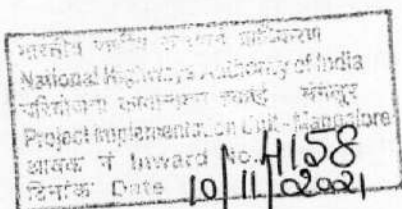 भारतीय राष्ट्रीय राजमार्ग प्राधिकरण
National Highways Authority of India
परियोजना कार्यान्वयन इकाई - मंगलूर
Project Implementation Unit - Mangalore
आवक नं Inward No. 4158
दिनांक Date 10/11/2021